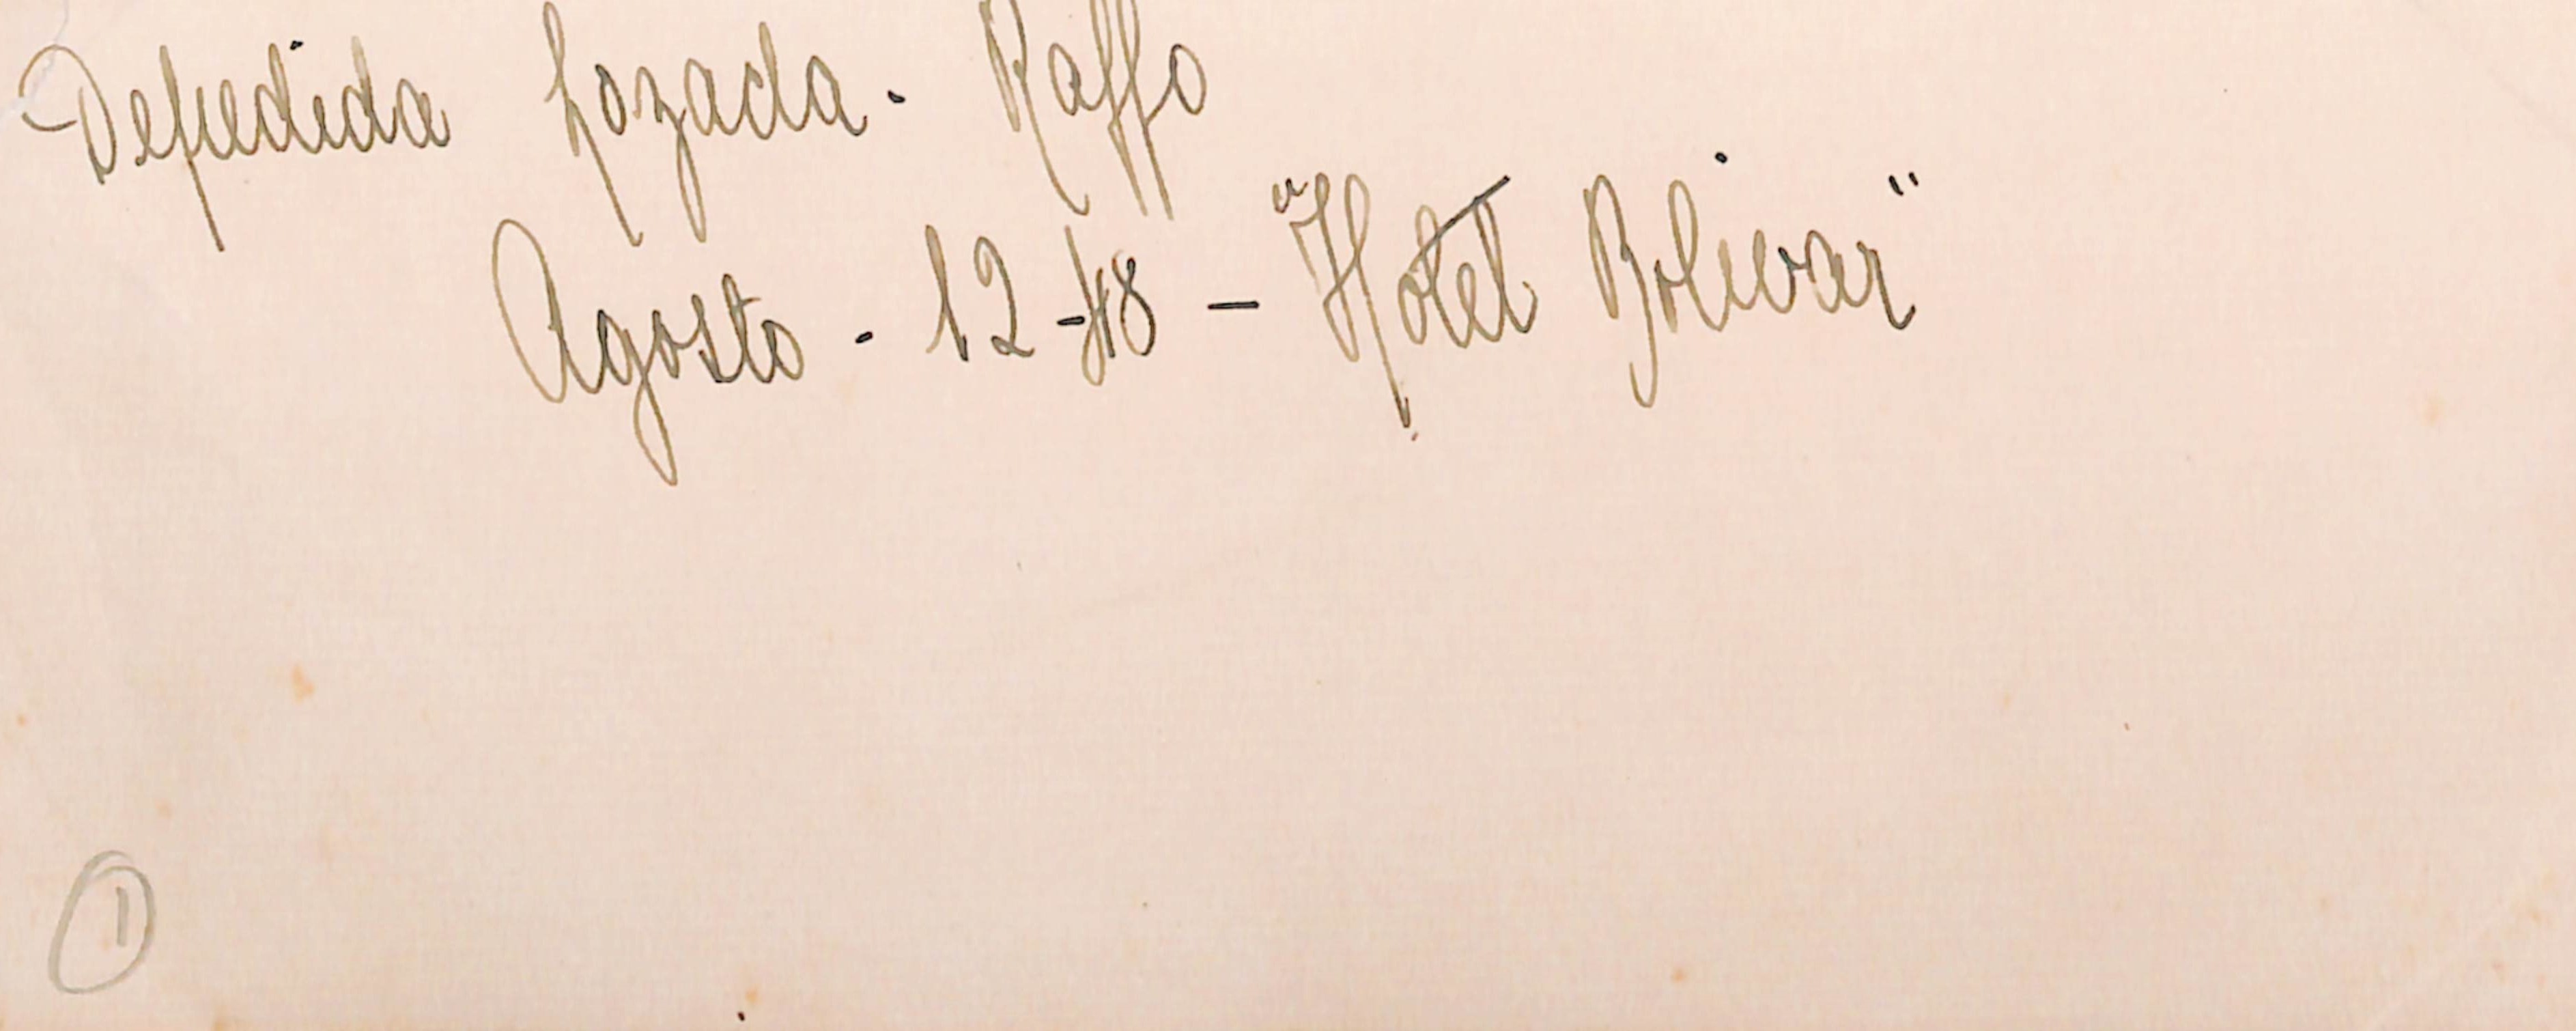 Depedida Lozada. Raffo
Agosto. 12-48 - "Hotel Bolivar"
1